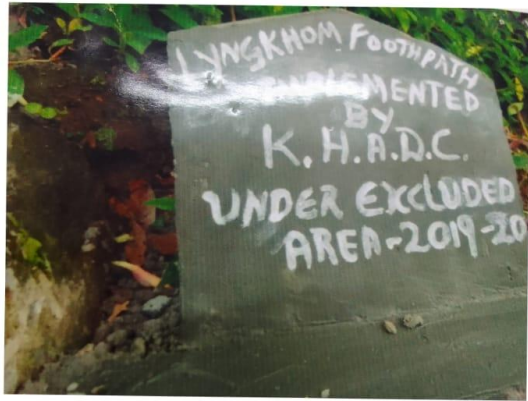 LYNGKHOM FOOTHPATH
IMPLEMENTED
BY
K.H.A.D.C.
UNDER EXCLUDED
AREA-2019-20